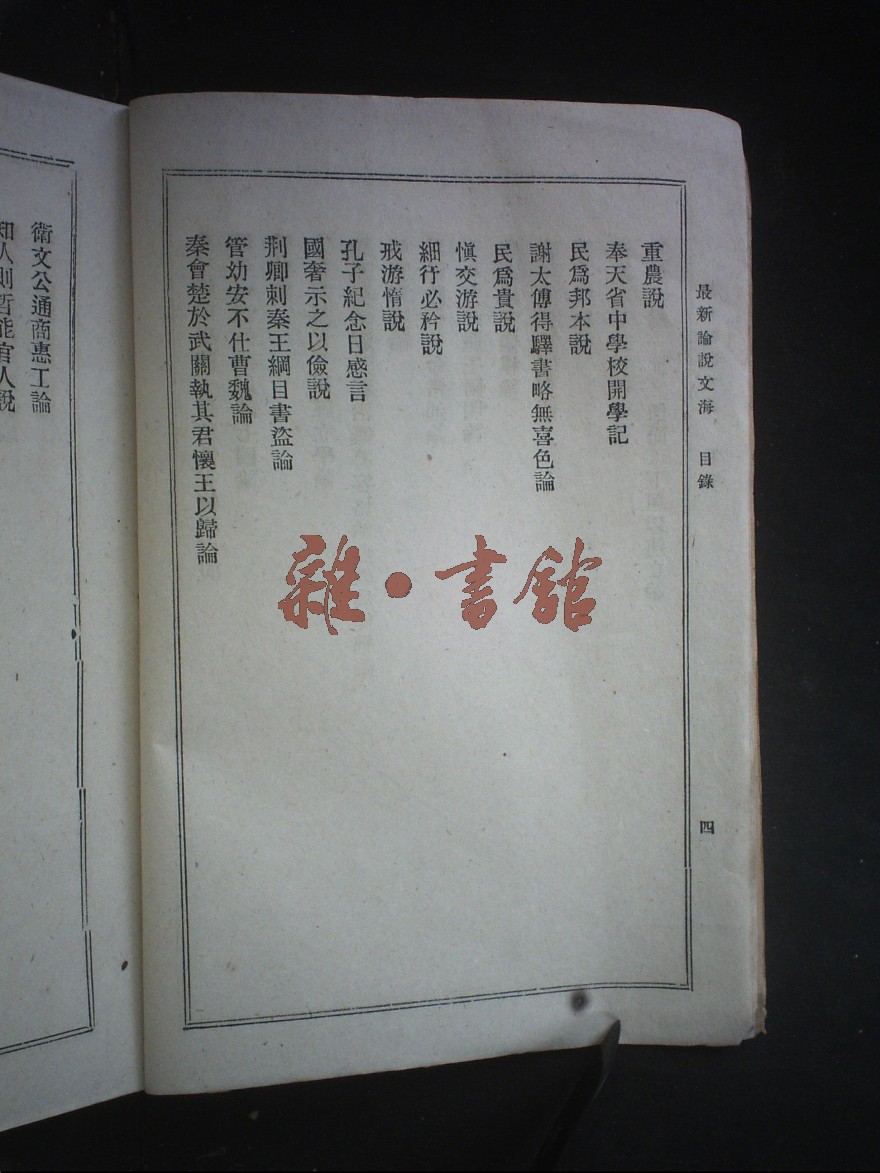 最新論說文海 目錄 四
重農說
奉天省中學校開學記
民爲邦本說
謝太傅得驛書略無喜色論
民爲貴說
愼交游說
細行必矜說
戒游惰說
孔子紀念日感言
國奢示之以儉說
荆卿刺秦王綱目書盜論
管幼安不仕曹魏論
秦會楚於武關執其君懷王以歸論
衛文公通商惠工論
知人則哲能官人說
雜·書館